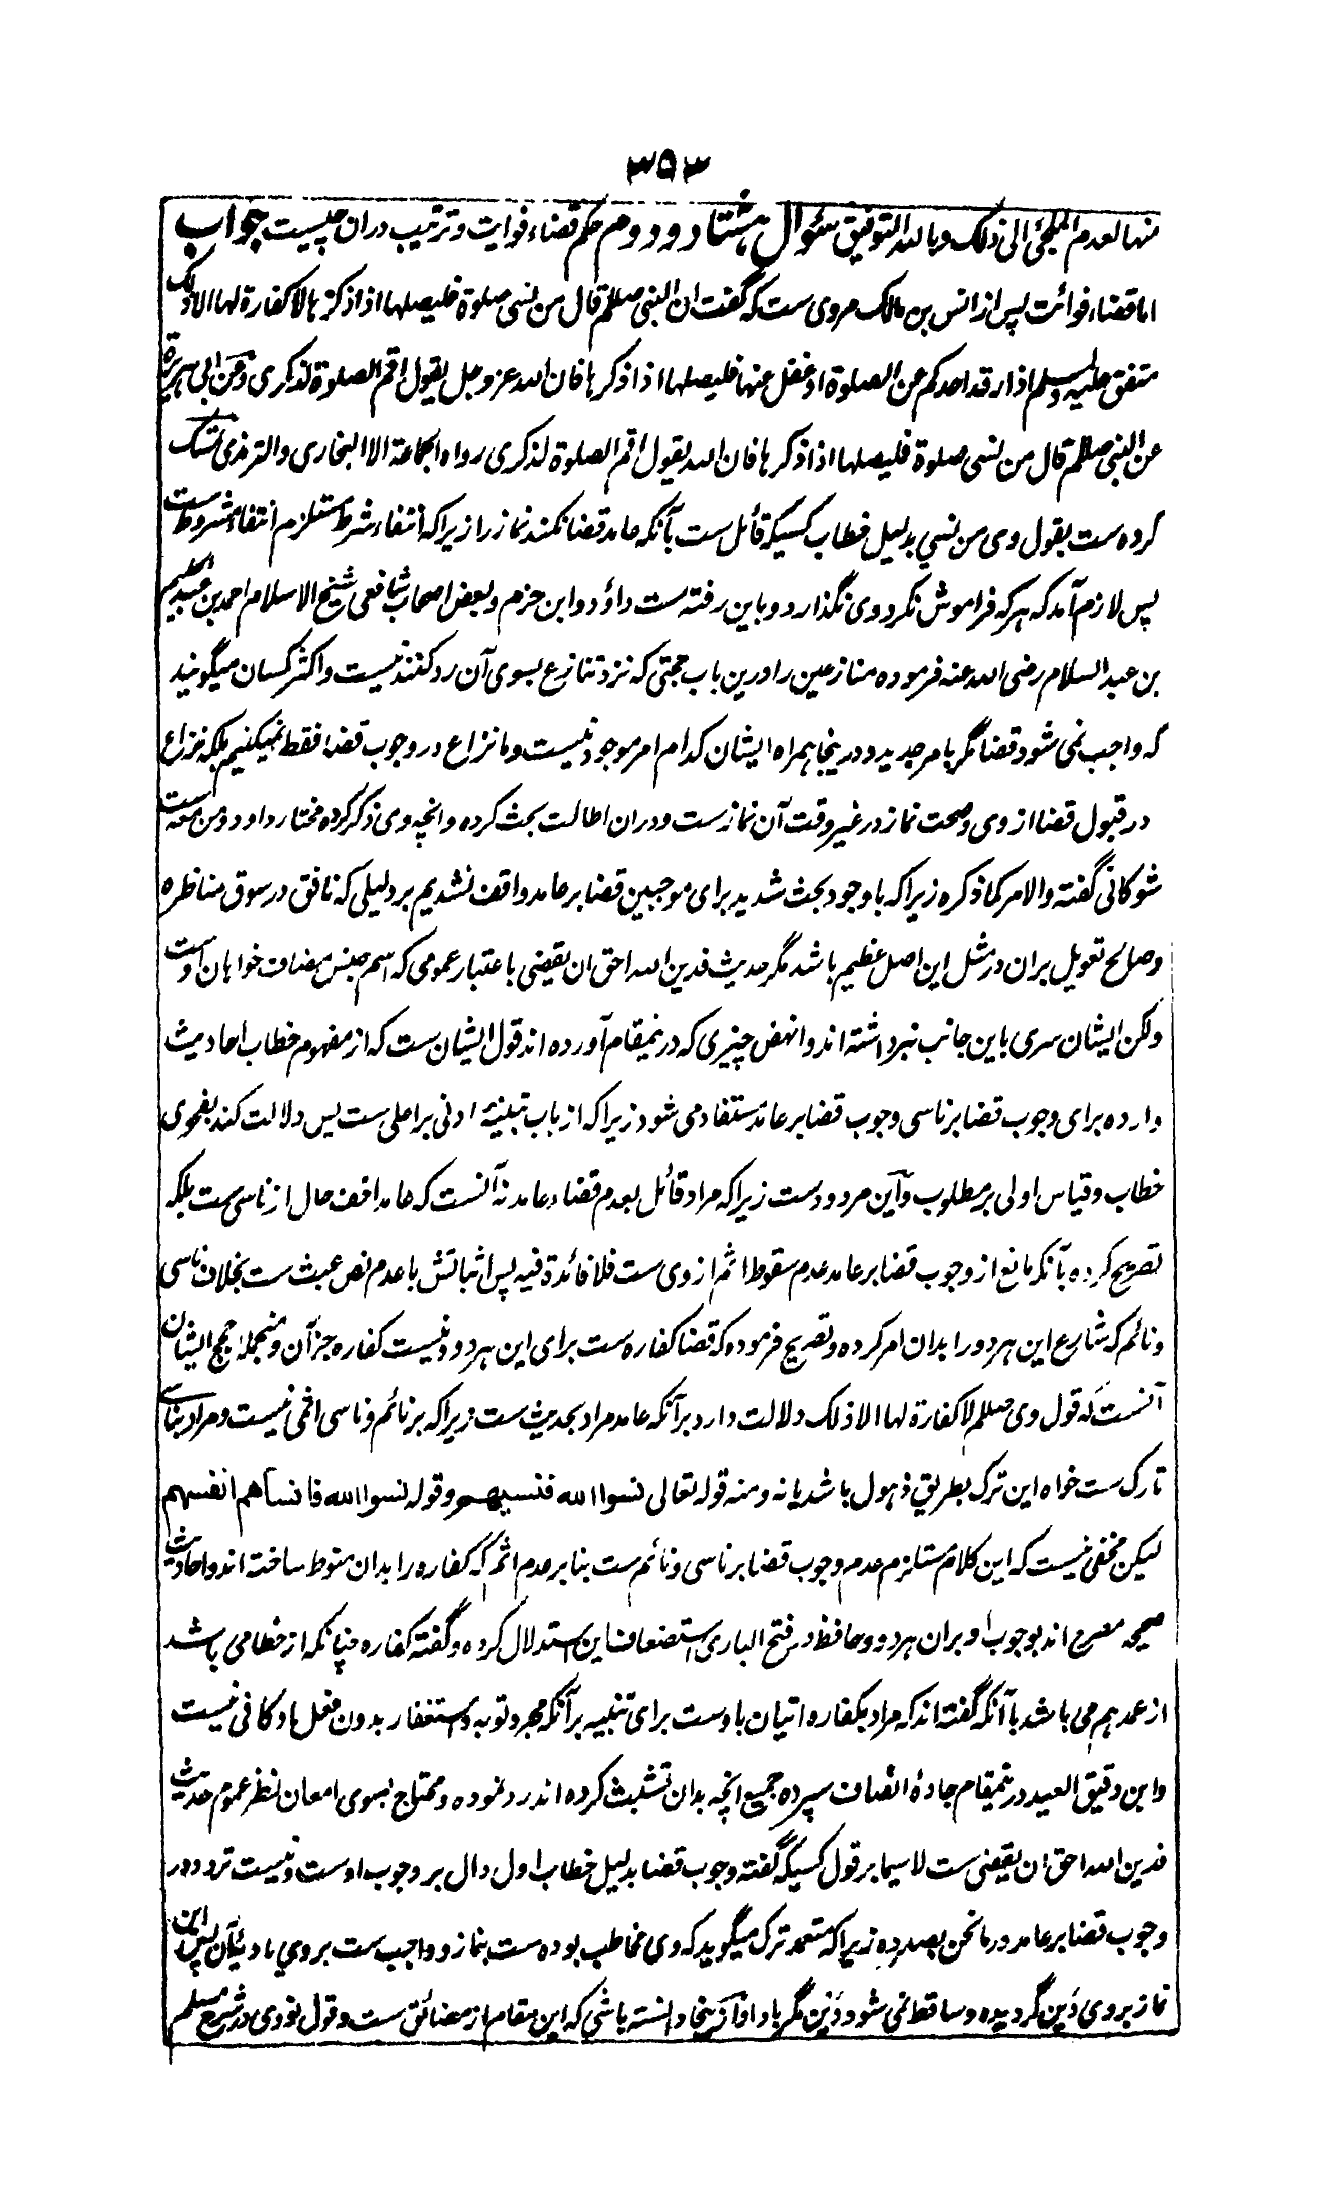 ۳۵۳
منہا لعدم الملجئ الی ذلک وباللہ التوفیق سوال ہشتاد و دوم حکم قضاء فوایت و ترتیب دران چیست جواب
اما قضاء فوائت پس از انس بن مالک مروی ست کہ گفت ان النبی صللم قال من نسی صلوۃ فلیصلہا اذا ذکرہا لا کفارۃ لہا الا ذلک
متفق علیہ ولمسلم اذا رقد احدکم عن الصلوۃ او غفل عنہا فلیصلہا اذا ذکرہا فان اللہ عز وجل یقول اقم الصلوۃ لذکری وعن ابی ہریرۃ
عن النبی صللم قال من نسی صلوۃ فلیصلہا اذا ذکرہا فان اللہ یقول اقم الصلوۃ لذکری رواہ الجماعۃ الا البخاری والترمذی تمسک
کردہ ست بقول وی من نسی بدلیل خطاب کسیکہ قائل ست بآنکہ عامد قضا نکند نماز را زیرا کہ انتفاء شرط مستلزم انتفاء مشروط ست
پس لازم آمد کہ ہر کہ فراموش نکرد وی نگذارد و باین رفتہ ست داؤد و ابن حزم و بعض اصحاب شافعی شیخ الاسلام احمد بن عبد الحلیم
بن عبد السلام رضی اللہ عنہ فرمودہ منازعین را درین باب حجتی کہ نزد تنازع بسوی آن رد کنند نیست و اکثر کسان میگویند
کہ واجب نمی شود قضا مگر بامر جدید و درینجا ہمراہ ایشان کدام امر موجود نیست و ما نزاع در وجوب قضا فقط نمیکنیم بلکہ نزاع
در قبول قضا از وی و صحت نماز در غیر وقت آن نماز ست و دران اطالت بحث کردہ و انچہ وی ذکر کردہ مختار داود ومن معہ ست
شوکانی گفتہ والامر کما ذکرہ زیرا کہ باوجود بحث شدید برای موجبین قضا بر عامد واقف نشدیم بر دلیلی کہ نافق در سوق مناظرہ
و صالح تعویل بران در مثل این اصل عظیم باشد مگر حدیث فدین اللہ احق ان یقضی باعتبار عمومی کہ اسم جنس مضاف خواہان اوست
ولکن ایشان سری باین جانب نبرداشتہ اند و انہض چیزی کہ درینمقام آوردہ اند قول ایشان ست کہ از مفہوم خطاب احادیث
واردہ برای وجوب قضا بر ناسی وجوب قضا بر عامد مستفاد می شود زیرا کہ از باب تنبیہ ادنی بر اعلی ست پس دلالت کند بفحوی
خطاب و قیاس اولی بر مطلوب و این مردود ست زیرا کہ مراد قائل بعدم قضاء عامد نہ آنست کہ عامد اخف حال از ناسی ست بلکہ
تصریح کردہ بآنکہ مانع از وجوب قضا بر عامد عدم سقوط اثم از وی ست فلا فائدۃ فیہ پس اثباتش با عدم نص عبث ست بخلاف ناسی
و نائم کہ شارع این ہر دو را بدان امر کردہ و تصریح فرمودہ کہ قضا کفارہ ست برای این ہر دو و نیست کفارہ جز آن و منجملہ حجج ایشان
آنست کہ قول وی صللم لا کفارۃ لہا الا ذلک دلالت دارد بر آنکہ عامد مراد بحدیث ست زیرا کہ بر نائم و ناسی اثمی نیست و مراد بناسی
تارک ست خواہ این ترک بطریق ذہول باشد یا نہ ومنہ قولہ تعالی نسوا اللہ فنسیہم وقولہ نسوا اللہ فانساہم انفسہم
لیکن مخفی نیست کہ این کلام مستلزم عدم وجوب قضا بر ناسی و نائم ست بنا بر عدم اثم کہ کفارہ را بدان منوط ساختہ اند و احادیث
صحیحہ مصرح اند بوجوب او بران ہر دو و حافظ در فتح الباری استضعاف این استدلال کردہ و گفتہ کفارہ چنانکہ از خطا می باشد
از عمد ہم می باشد با آنکہ گفتہ اند کہ مراد بکفارہ اتیان باوست برای تنبیہ بر آنکہ مجرد توبہ و استغفار بدون فعل او کافی نیست
و ابن دقیق العید درینمقام جادۂ انصاف سپردہ جمیع انچہ بدان تشبث کردہ اند رد نمودہ و محتاج بسوی امعان نظر عموم حدیث
فدین اللہ احق ان یقضی ست لاسیما بر قول کسیکہ گفتہ وجوب قضا بدلیل خطاب اول دال بر وجوب اوست و نیست تردد در
وجوب قضا بر عامد در ما نحن بصددہ زیرا کہ متعمد ترک میگوید کہ وی مخاطب بودہ ست بنماز و واجب ست بر وی تادیۂ آن پس این
نماز بر وی دین گردیدہ و ساقط نمی شود دین مگر باداء از ینجا دانستہ باشی کہ این مقام از مضائق ست و قول نووی در شرح مسلم